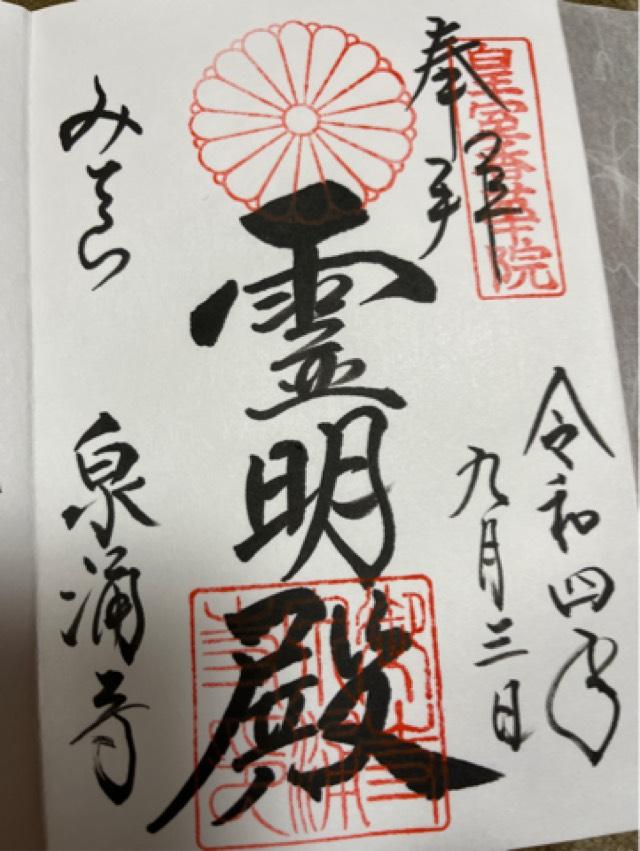 奉拝
皇室香華院
令和四年
九月三日
霊明殿
みてら
泉涌寺